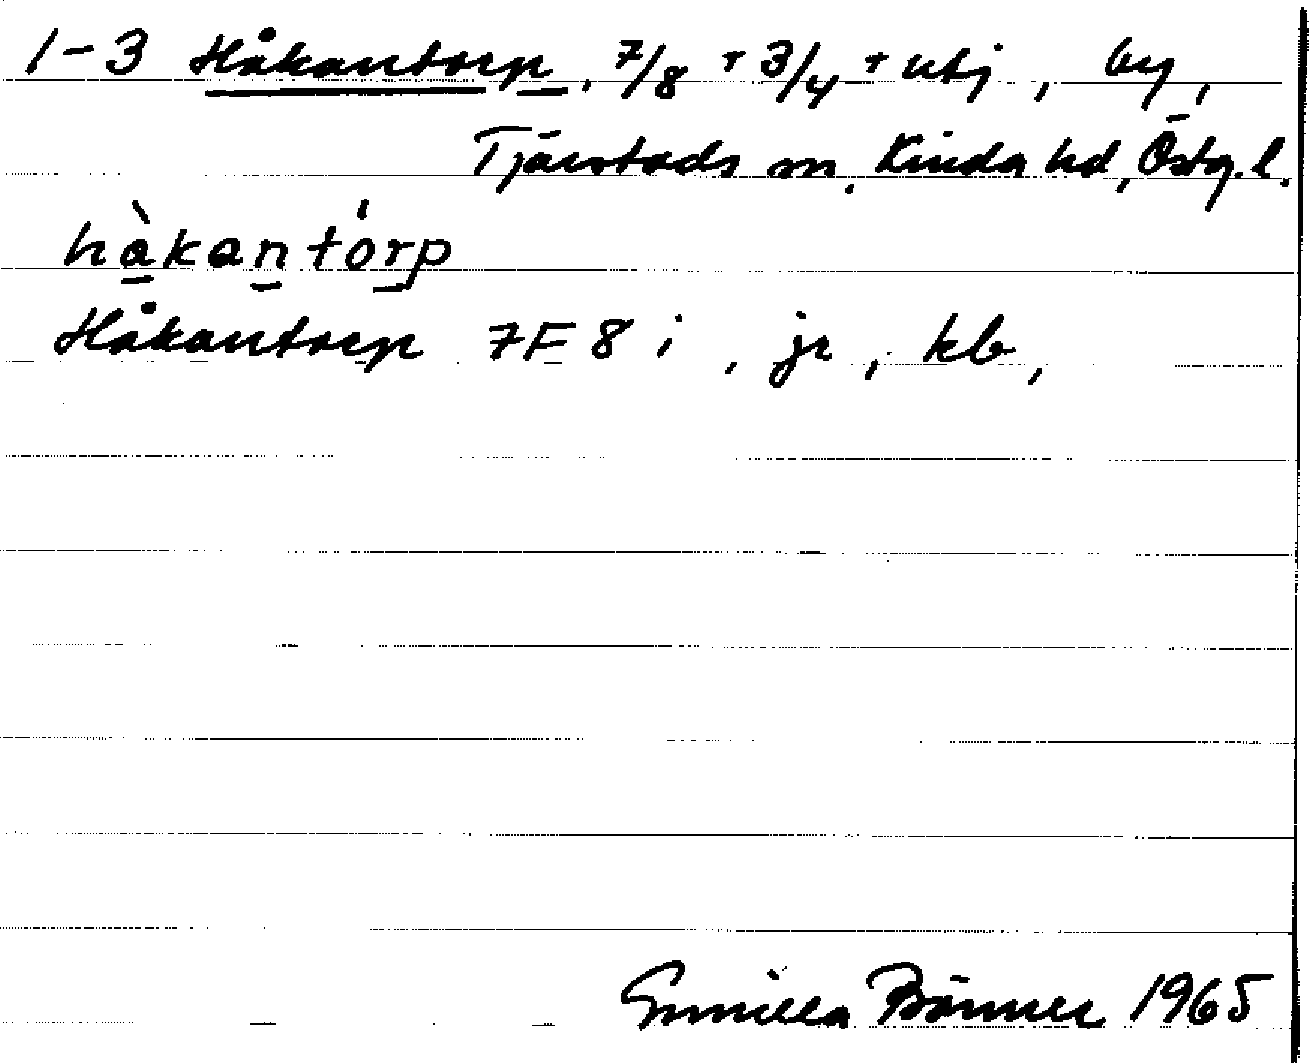 1-3 Håkantorp, 7/8 + 3/4 + utj, by,
Tjärstads sn, Kinda hd, Östg.l.
hàkantórp
Håkantorp 7F 8 i, jr, kb,
Gunilla 1965